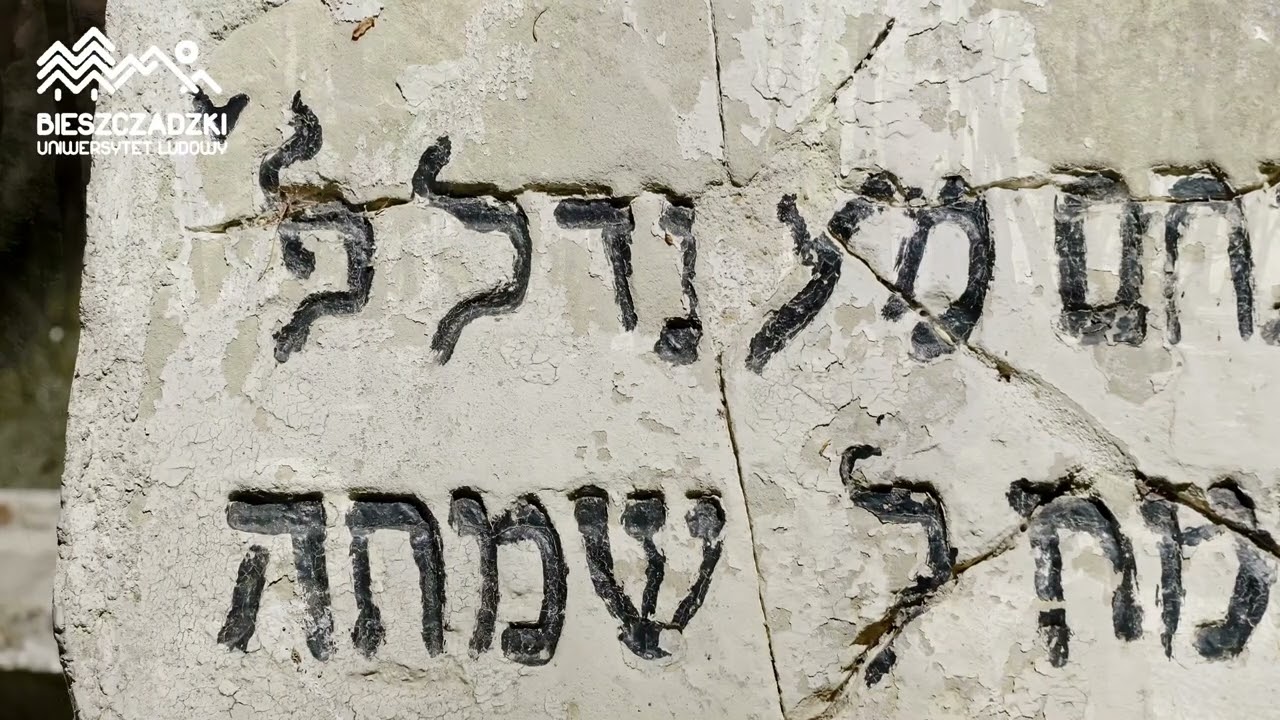 BIESZCZADZKI
UNIWERSYTET LUDOWY
חם מענדל
שמחה